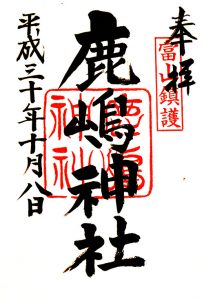 奉拝
富山鎮護
鹿嶋神社
平成三十年十月八日